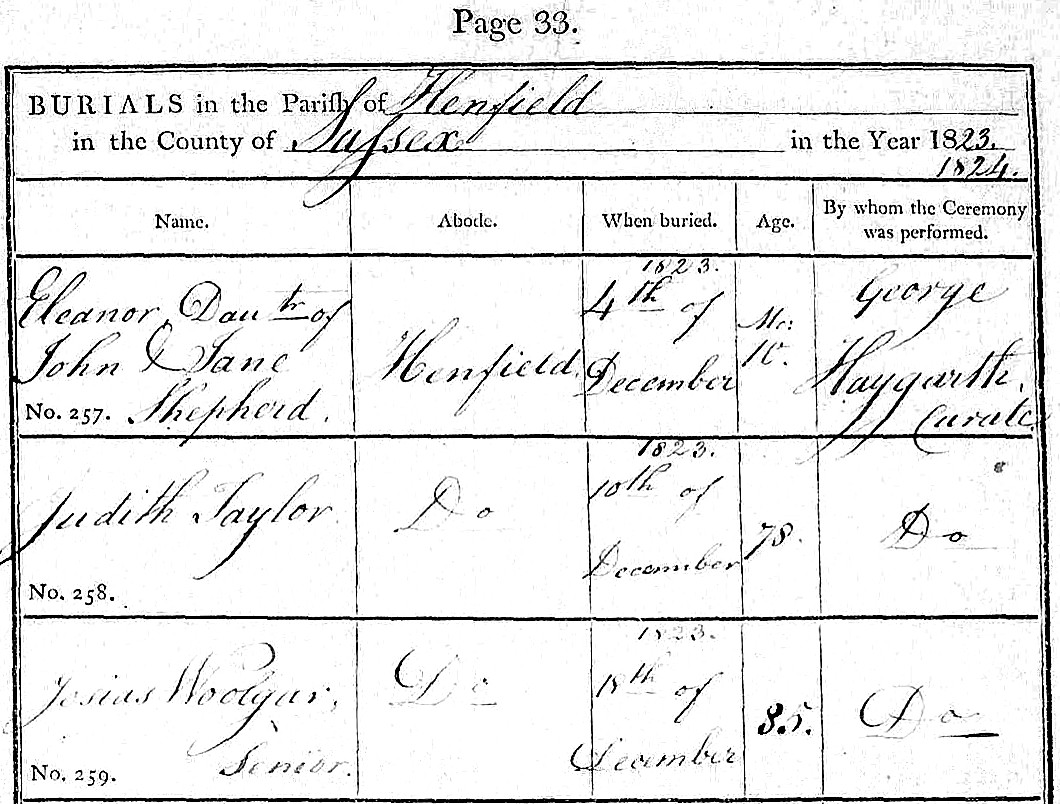 Page 33.
BURIALS in the Parish of Henfield
in the County of Sussex in the Year 1823.
1824.
Name. Abode. When buried. Age. By whom the Ceremony was performed.
1823.
Eleanor Dautr of Henfield. 4th of Mos George
John & Jane December 10. Haygarth,
No. 257. Shepherd. Curate
1823.
Judith Taylor Do 10th of 78. Do
December
No. 258.
1823.
Josias Woolgar, Do 18th of 85. Do
No. 259. Senior. December